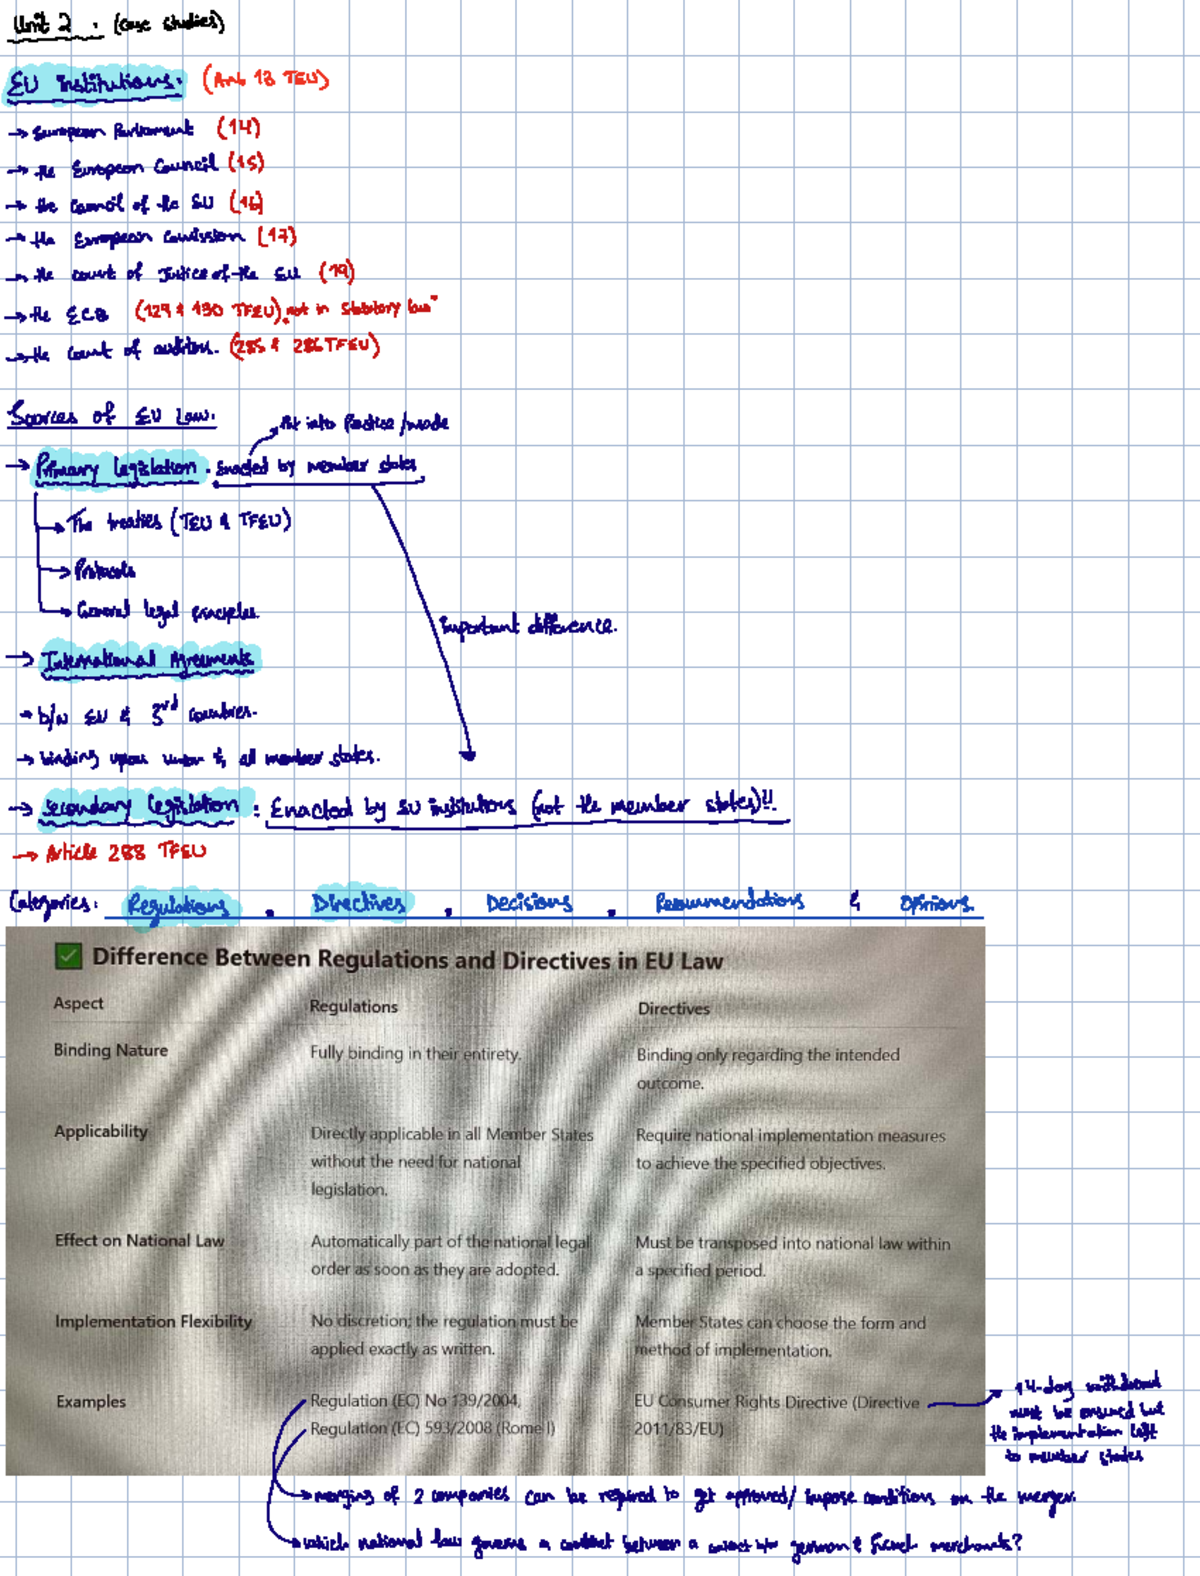 Unit 2 . (case studies)
EU institutions. (Art 13 TEU)
→ European Parliament (14)
→ the European Council (15)
→ the Council of the EU (16)
→ the European Commission (17)
→ the court of Justice of the EU (19)
→ the ECB (129 & 130 TFEU) not in Statutory law"
→ the Court of auditors. (285 & 286 TFEU)
Sources of EU Law.
Put into Practice/made
→ Primary Legislation . Enacted by member states
→ The treaties (TEU & TFEU)
→ Protocols
→ General legal principles.
important difference.
→ International Agreements
→ b/w EU & 3rd Countries.
→ binding upon union & all member states.
→ Secondary Legislation : Enacted by EU institutions (not the member states)!!
→ Article 288 TFEU
Categories: Regulations , Directives , Decisions , Recommendations & Opinions.
✅ Difference Between Regulations and Directives in EU Law
Aspect Regulations Directives
Binding Nature Fully binding in their entirety. Binding only regarding the intended
outcome.
Applicability Directly applicable in all Member States Require national implementation measures
without the need for national to achieve the specified objectives.
legislation.
Effect on National Law Automatically part of the national legal Must be transposed into national law within
order as soon as they are adopted. a specified period.
Implementation Flexibility No discretion; the regulation must be Member States can choose the form and
applied exactly as written. method of implementation.
Examples Regulation (EC) No 139/2004, EU Consumer Rights Directive (Directive
Regulation (EC) 593/2008 (Rome I) 2011/83/EU)
→ 14-day withdrawal
must be ensured but
the implementation left
to member states
→ merging of 2 companies can be required to get approved/ impose conditions on the merger.
→ which national law governs a contract between a b/w german & french merchants?